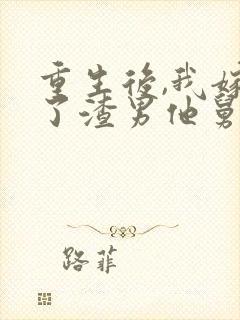 重生後,我嫁
了渣男他舅
路菲